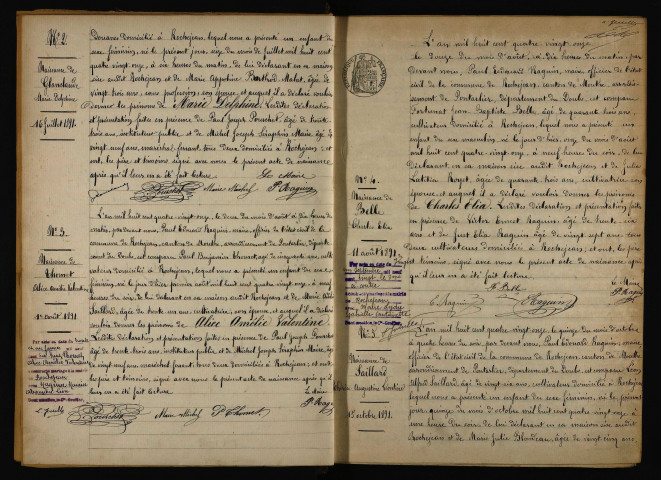 N° 2.
Naissance de
Marie Delphine
16 Juillet 1891.
Douanes domicilié à Rochejean, lequel nous a présenté un enfant de
sexe féminin, né le présent jour, seize du mois de juillet mil huit cent
quatre vingt onze, à six heures du matin, de lui déclarant en sa maison
sise audit Rochejean et de Marie
vingt trois ans, sans profession, son épouse, et auquel il a déclaré vouloir
donner les prénoms de Marie Delphine. Lesdites déclaration
et présentation faites en présence de Paul Joseph Pourchet, âgé de trente
trois ans, instituteur public, et de Michel Joseph Séraphin Maire, âgé de
vingt neuf ans, maréchal ferrant, tous deux domiciliés à Rochejean, et
ont, les père et témoins signé avec nous le présent acte de naissance
après qu'il leur en a été fait lecture. Le Maire
Pourchet Maire Michel P. Raguin
N° 3.
Naissance de
Thomet
Alice Amélie Valentine
1er août 1891.
L'an mil huit cent quatre vingt onze, le deux du mois d'août à dix heures du
matin, par devant nous, Paul Edouard Raguin, maire, officier de l'état civil de la
commune de Rochejean, canton de Mouthe, arrondissement de Pontarlier, département
du Doubs, est comparu Paul Benjamin Thomet, âgé de cinquante ans, culti-
vateur domicilié à Rochejean, lequel nous a présenté un enfant de sexe
féminin, né le jour d'hier premier du mois d'août mil huit cent quatre vingt onze, à neuf
heures du soir, de lui déclarant en sa maison audit Rochejean et de Marie
Saillard, âgée de trente un ans, cultivatrice, son épouse, et auquel il a déclaré
vouloir donner les prénoms de Alice Amélie Valentine.
Lesdites déclaration et présentation faites en présence de Paul Joseph Pourchet
âgé de trente trois ans, instituteur public, et de Michel Joseph Séraphin Maire, âgé
de vingt neuf ans, maréchal ferrant, tous deux domiciliés à Rochejean, et ont, les
père et témoins, signé avec nous le présent acte de naissance après qu'il
leur en a été fait lecture. Le Maire
Pourchet Maire Michel P. Thomet P. Raguin
L'an mil huit cent quatre vingt onze
le douze du mois d'août, à dix heures du matin, par
devant nous, Paul Edouard Raguin, maire, officier de l'état
civil de la commune de Rochejean, canton de Mouthe, arrondis-
sement de Pontarlier, département du Doubs, est comparu
Fortunat Jean Baptiste Belle, âgé de quarante trois ans,
cultivateur domicilié à Rochejean, lequel nous a présenté un
enfant de sexe masculin, né le jour d'hier, onze du mois d'août
mil huit cent quatre vingt onze, à neuf heures du soir de lui
déclarant en sa maison sise audit Rochejean et de Julie
Laetitia Roget, âgée de quarante ans, cultivatrice, son
épouse, et auquel il a déclaré vouloir donner les prénoms
de Charles Elia. Lesdites déclaration et présentation faites
en présence de Victor Ernest Raguin, âgé de trente six
ans et de Just Elie Raguin, âgé de vingt sept ans, tous
deux cultivateurs domiciliés à Rochejean, et ont, les père et
témoins, signé avec nous le présent acte de naissance après
qu'il leur en a été fait lecture.
Le Maire
F. Belle P. Raguin
E. Raguin E. Raguin
N° 4.
Naissance de
Belle
Charles Elia
11 août 1891.
N° 5.
Naissance de
Saillard
Augustine Léontine
15 octobre 1891.
L'an mil huit cent quatre vingt onze, le quinze du mois d'octobre,
à quatre heures du soir, par devant nous, Paul Edouard Raguin, maire,
officier de l'état civil de la commune de Rochejean, canton de Mouthe,
arrondissement de Pontarlier, département du Doubs, est comparu Léon
Alfred Saillard, âgé de vingt six ans, cultivateur domicilié à Rochejean,
lequel nous a présenté un enfant de sexe féminin, né le présent
jour, quinze du mois d'octobre mil huit cent quatre vingt onze, à
une heure du soir, de lui déclarant en sa maison sise audit
Rochejean et de Marie Julie Blondeau, âgée de vingt cinq ans,